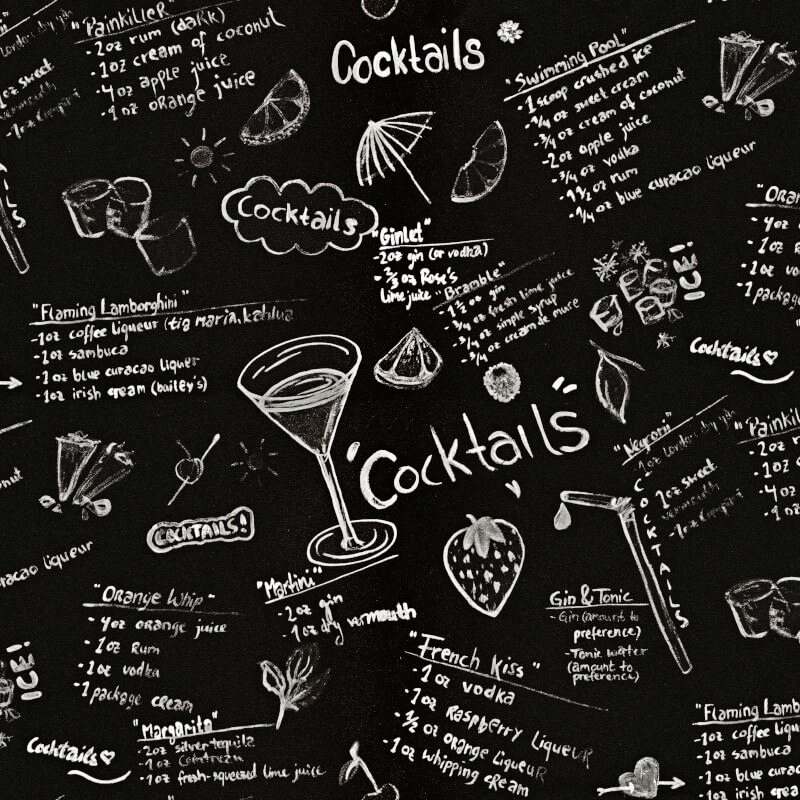 "Painkiller"
-2oz rum (dark)
-1oz cream of coconut
-4oz apple juice
-1oz orange juice
1oz sweet
vermouth
-1oz
Cocktails
"Swimming Pool"
-1scoop crushed ice
-1/4 oz sweet cream
-3/4 oz cream of coconut
-2oz apple juice
-3/4 oz vodka
-1 1/2 oz rum
-1/4 oz blue curacao liqueur
Cocktails
"Gimlet"
-2oz gin (or vodka)
-2/3 oz Rose's
lime juice
"Bramble"
-1 1/2 oz gin
-3/4 oz fresh lime juice
-3/4 oz simple syrup
-3/4 oz creamde mure
ICE!
-4oz
-1oz
-1oz vo
-1package
"Flaming Lamborghini"
-1oz coffee liqueur (tia maria, kahlua
-1oz sambuca
-1oz blue curacao liquer
-1oz irish cream (bailey's)
Cocktails
Cocktails
"Negroni"
-1oz London dry gin
1oz sweet
vermouth
-1oz
COCKTAILS
"Painkill
-2oz
-1oz
-4oz
-1oz
racao liqueur
COCKTAILS!
"Orange Whip-
-4oz orange juice
-1oz Rum
-1oz vodka
-1package cream
"Martini"
-2oz gin
-1oz dry vermouth
Gin & Tonic
-Gin (amount to
preference)
-Tonic water
(amount to
preference)
ICE!
"French Kiss"
-1oz vodka
-1oz Raspberry Liqueur
-1/2 oz orange liqueur
-1oz whipping cream
"Margarita"
-2oz silver tequila
-1oz Cointreau
-1oz fresh-squeezed lime juice
Cocktails
"Flaming Lamb
-1oz coffee liqu
-1oz sambuca
-1oz blue cura
-1oz irish crea